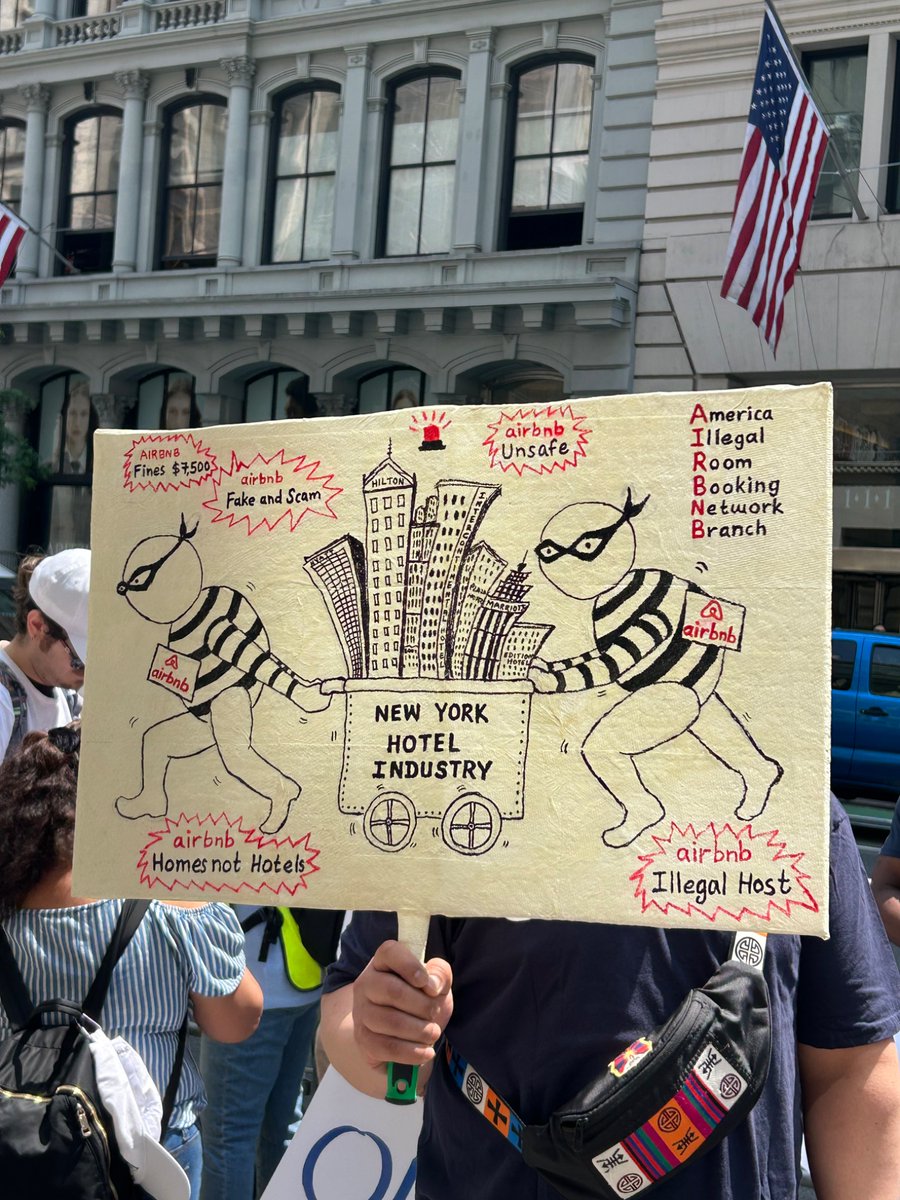 AIRBNB
Fines $7,500
airbnb
Fake and Scam
airbnb
Unsafe
America
Illegal
Room
Booking
Network
Branch
HILTON
MARRIOT
EDITION
HOTEL
airbnb
airbnb
NEW YORK
HOTEL
INDUSTRY
airbnb
Homes not Hotels
airbnb
Illegal Host